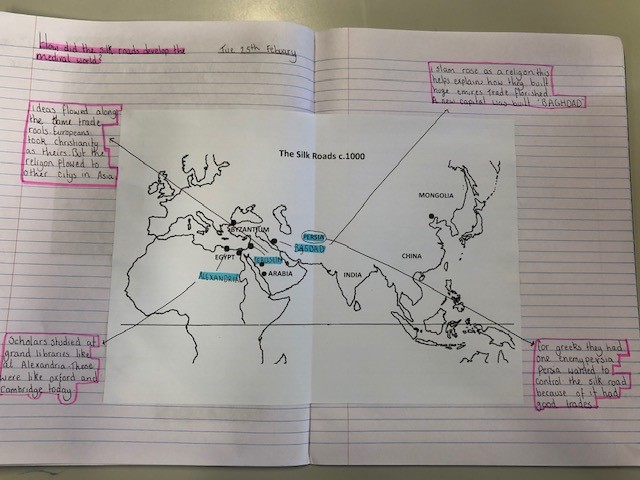 How did the silk roads develop the
medival world?
Tue 25th Febuary
islam rose as a religon this
helps explain how they built
huge emires. Trade florished
A new capital was built 'BAGHDAD'
ideas flowed along
the same trade
roots. Europeans
took christianity
as theirs. But the
religon flowed to
other citys in Asia
The Silk Roads c.1000
MONGOLIA
BYZANTIUM
PERSIA
BAGDAD
EGYPT
CHINA
ARABIA
INDIA
ALEXANDRIA
Scholars studied at
grand libraries like
at Alexandria. These
were like oxford and
Cambridge today
for greeks they had
one enemy persia
Persia wanted to
control the silk road
because of it had
good trades